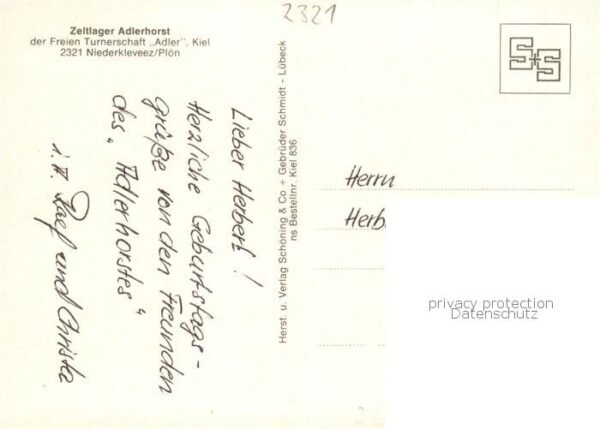 2321
Zeltlager Adlerhorst
der Freien Turnerschaft „Adler", Kiel
2321 Niederkleveez/Plön
S+S
Lieber Herbert!
Herzliche Geburtstags-
grüße von den Freunden
des „Adlerhorstes"
i.A. und Christa
Herst. u. Verlag Schöning & Co + Gebrüder Schmidt - Lübeck
ns Bestellnr. Kiel 836
Herrn
Herb
privacy protection
Datenschutz